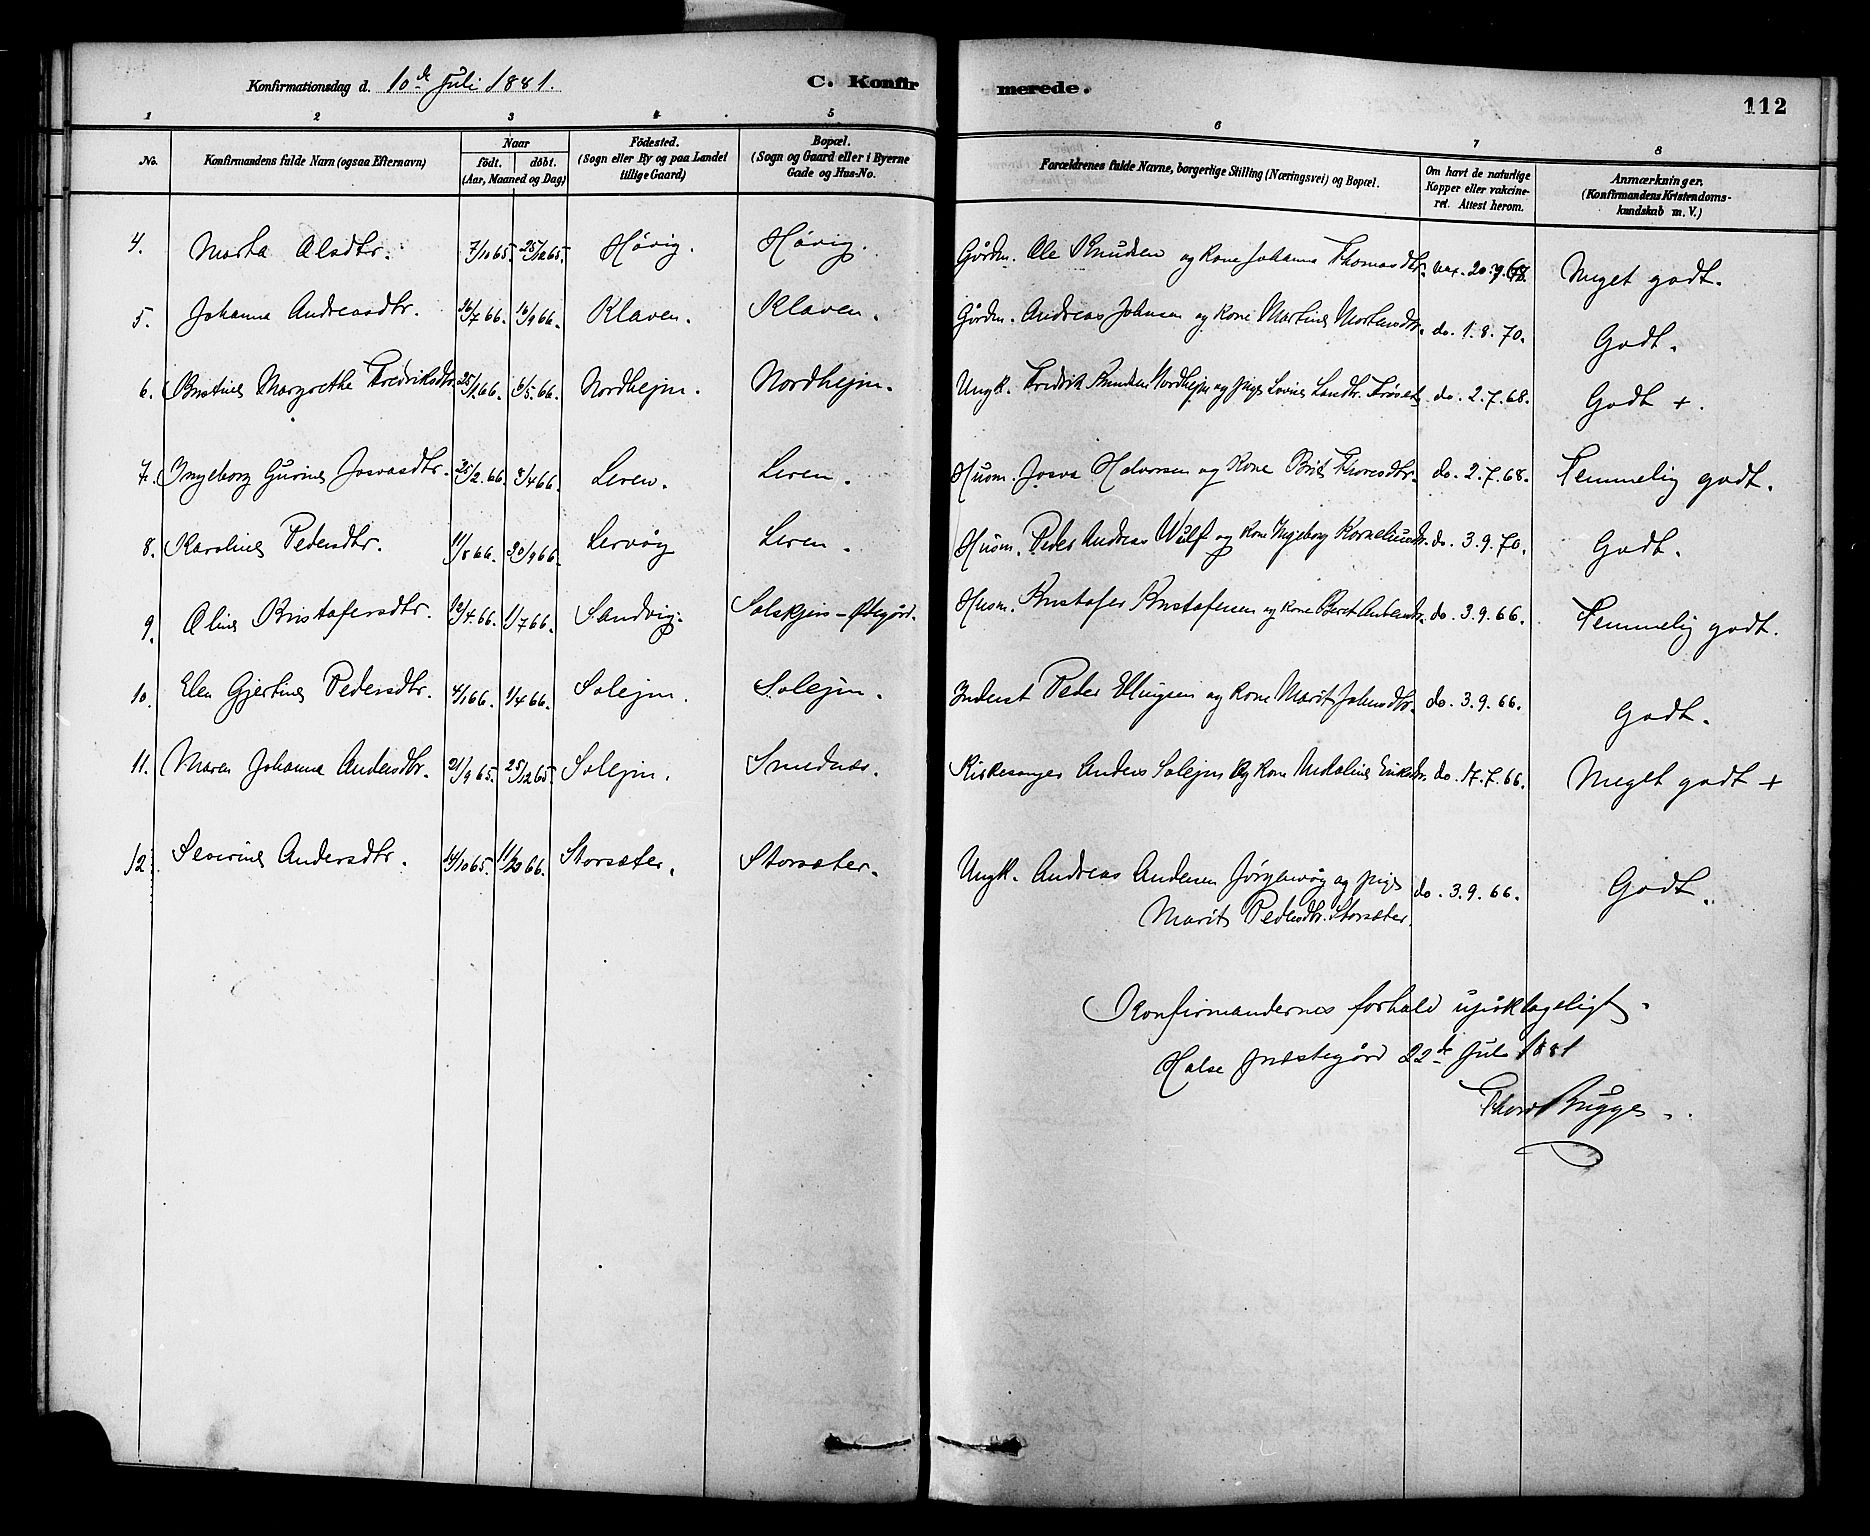 Konfirmationsdag d. 10de Juli 1881. C. Konfirmerede. 112
1 2 3 4 5 6 7 8
No. Konfirmandens fulde Navn (ogsaa Efternavn) Naar födt. döbt. (Aar, Maaned og Dag) Födested. (Sogn eller By og paa Landet tillige Gaard) Bopæl. (Sogn og Gaard eller i Byerne Gade og Hus-No. Forældrenes fulde Navne, borgerlige Stilling (Næringsvei) og Bopæl. Om havt de naturlige Kopper eller vakcineret. Attest herom. Anmærkninger. (Konfirmandens Kristendomskundskab m. V.)
4. Marta Olsdtr. 7/10 65. 25/12 65. Høvig. Høvig. Gårdm. Ole Knudsen og Kone Johanna Thomasdtr. vax. 20.9. Meget godt.
5. Johanna Andreasdtr. 26/7 66. 16/9 66. Klaven. Klaven. Gårdm. Andreas Johnsen og Kone Martine Mortensdtr. do. 1.8.70. Godt.
6. Kristine Margrethe Fredriksdtr. 25/1 66. 6/5 66. Nordhejm. Nordhejm. Ungk. Fredrik Knudsen Nordhejm og pige Lovise Larsdtr. do. 2.7.68. Godt +.
7. Ingeborg Gurine Josvasdtr. 25/2 66. 8/4 66. Leren. Leren. Husm. Josva Halvorsen og Kone Brit Thoresdtr. do. 2.7.68. Temmelig godt.
8. Karoline Pedersdtr. 11/8 66. 20/9 66. Lervåg Leren. Husm. Peder Andreas Wulf og Kone Ingeborg Korneliusdtr. do. 3.9.70. Godt.
9. Oline Kristofersdtr. 12/4 66. 1/7 66. Sandvig. Solskjels-Østegård. Husm. Kristofer Kristofersen og Kone Beret Antonsdtr. do. 3.9.66. Temmelig godt.
10. Elen Gjertine Pedersdtr. 4/1 66. 1/4 66. Solejm. Solejm. Inderst Peder Ellingsen og Kone Marit Johnsdtr. do. 3.9.66. Godt.
11. Maren Johanna Andersdtr. 21/9 65. 25/12 65. Solejm. Smednæs. Kirkesanger Anders Solejm og Kone Eriksdtr. do. 17.7.66. Meget godt +
12. Severine Andersdtr. 14/10 65. 66. Storsæter. Storsæter. Ungk. Andreas Andersen Jørgenvåg og pige do. 3.9.66. Godt.
Marit Pedersdtr. Storsæter.
Konfirmandernes forhold upåklageligt.
Halse præstegård 22de Juli 1881
Thord Bugge.